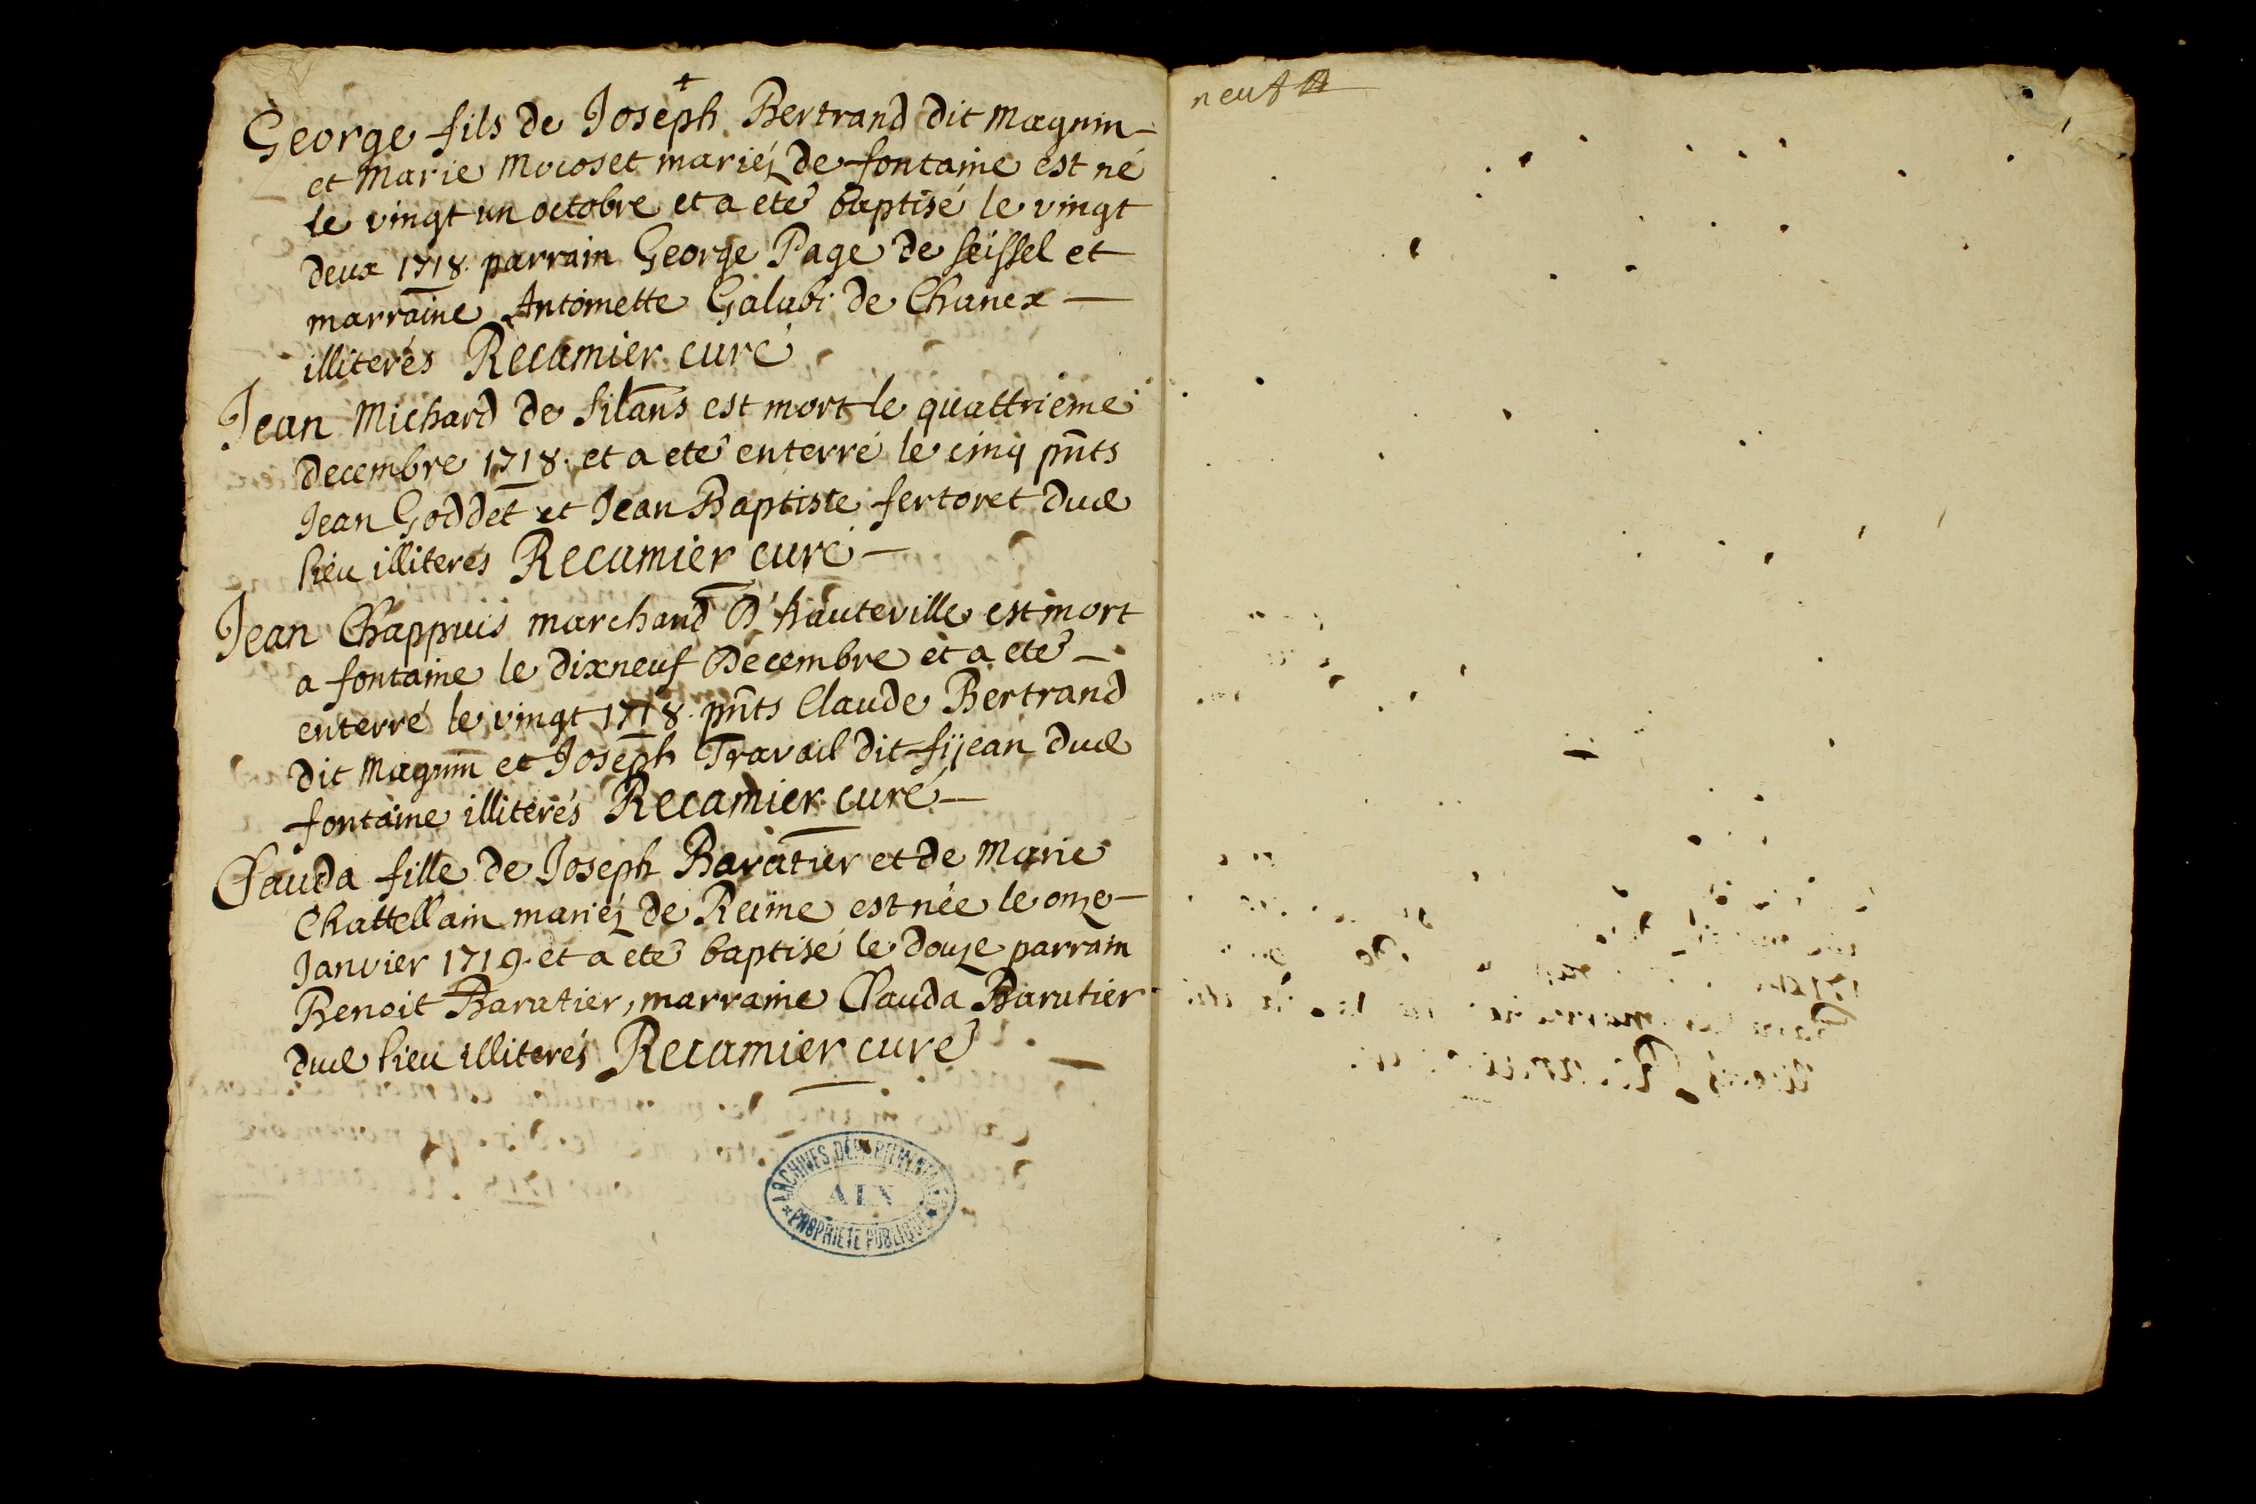 +
George fils de Joseph Bertrand dit magnin
et Marie Mocoset mariéz de fontaine est né
le vingt un octobre et a eté baptisé le vingt
deux 1718. parrain George Page de seissel et
marraine Antoinette Galubi de Chanex
illiterés Recamier curé
Jean Michard de silans est mort le quattrieme
decembre 1718. et a eté enterré le cinq pnts
Jean Goddet et Jean Baptiste fertoret dud
lieu illiterés Recamier curé
Jean Chappuis marchand D'hauteville est mort
a fontaine le dixneuf Decembre et a eté
enterré le vingt 1718. pnts Claude Bertrand
dit Magnin et Joseph Travail dit fijean dud
fontaine illiterés Recamier curé
Clauda fille de Joseph Baratier et de Marie
Chattellain mariéz de Reime est née le onze
Janvier 1719. et a eté baptisé le douze parrain
Benoit Baratier, marraine Clauda Baratier
dud lieu illiterés Recamier curé
ARCHIVES DÉPARTEMENTALES
AIN
PROPRIETE PUBLIQUE
neuf